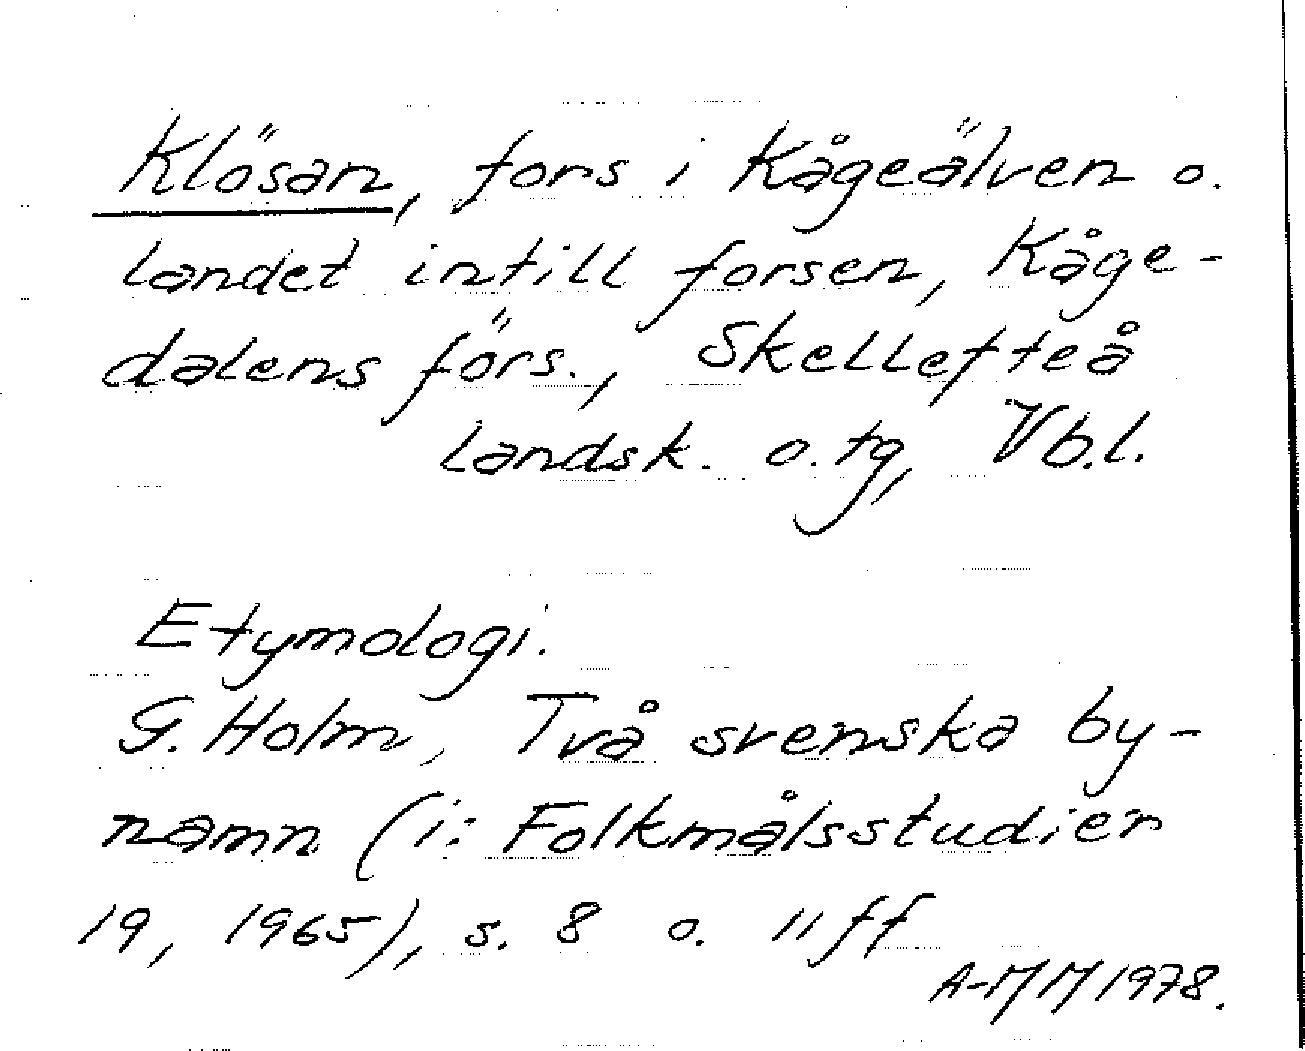 Klösan, fors i Kågeälven o.
landet intill forsen, Kåge-
dalens förs., Skellefteå
landsk. o. tg, Vb.l.
Etymologi.
G. Holm, Två svenska by-
namn (i: Folkmålsstudier
19, 1965), s. 8 o. 11 ff
A-M M 1978.